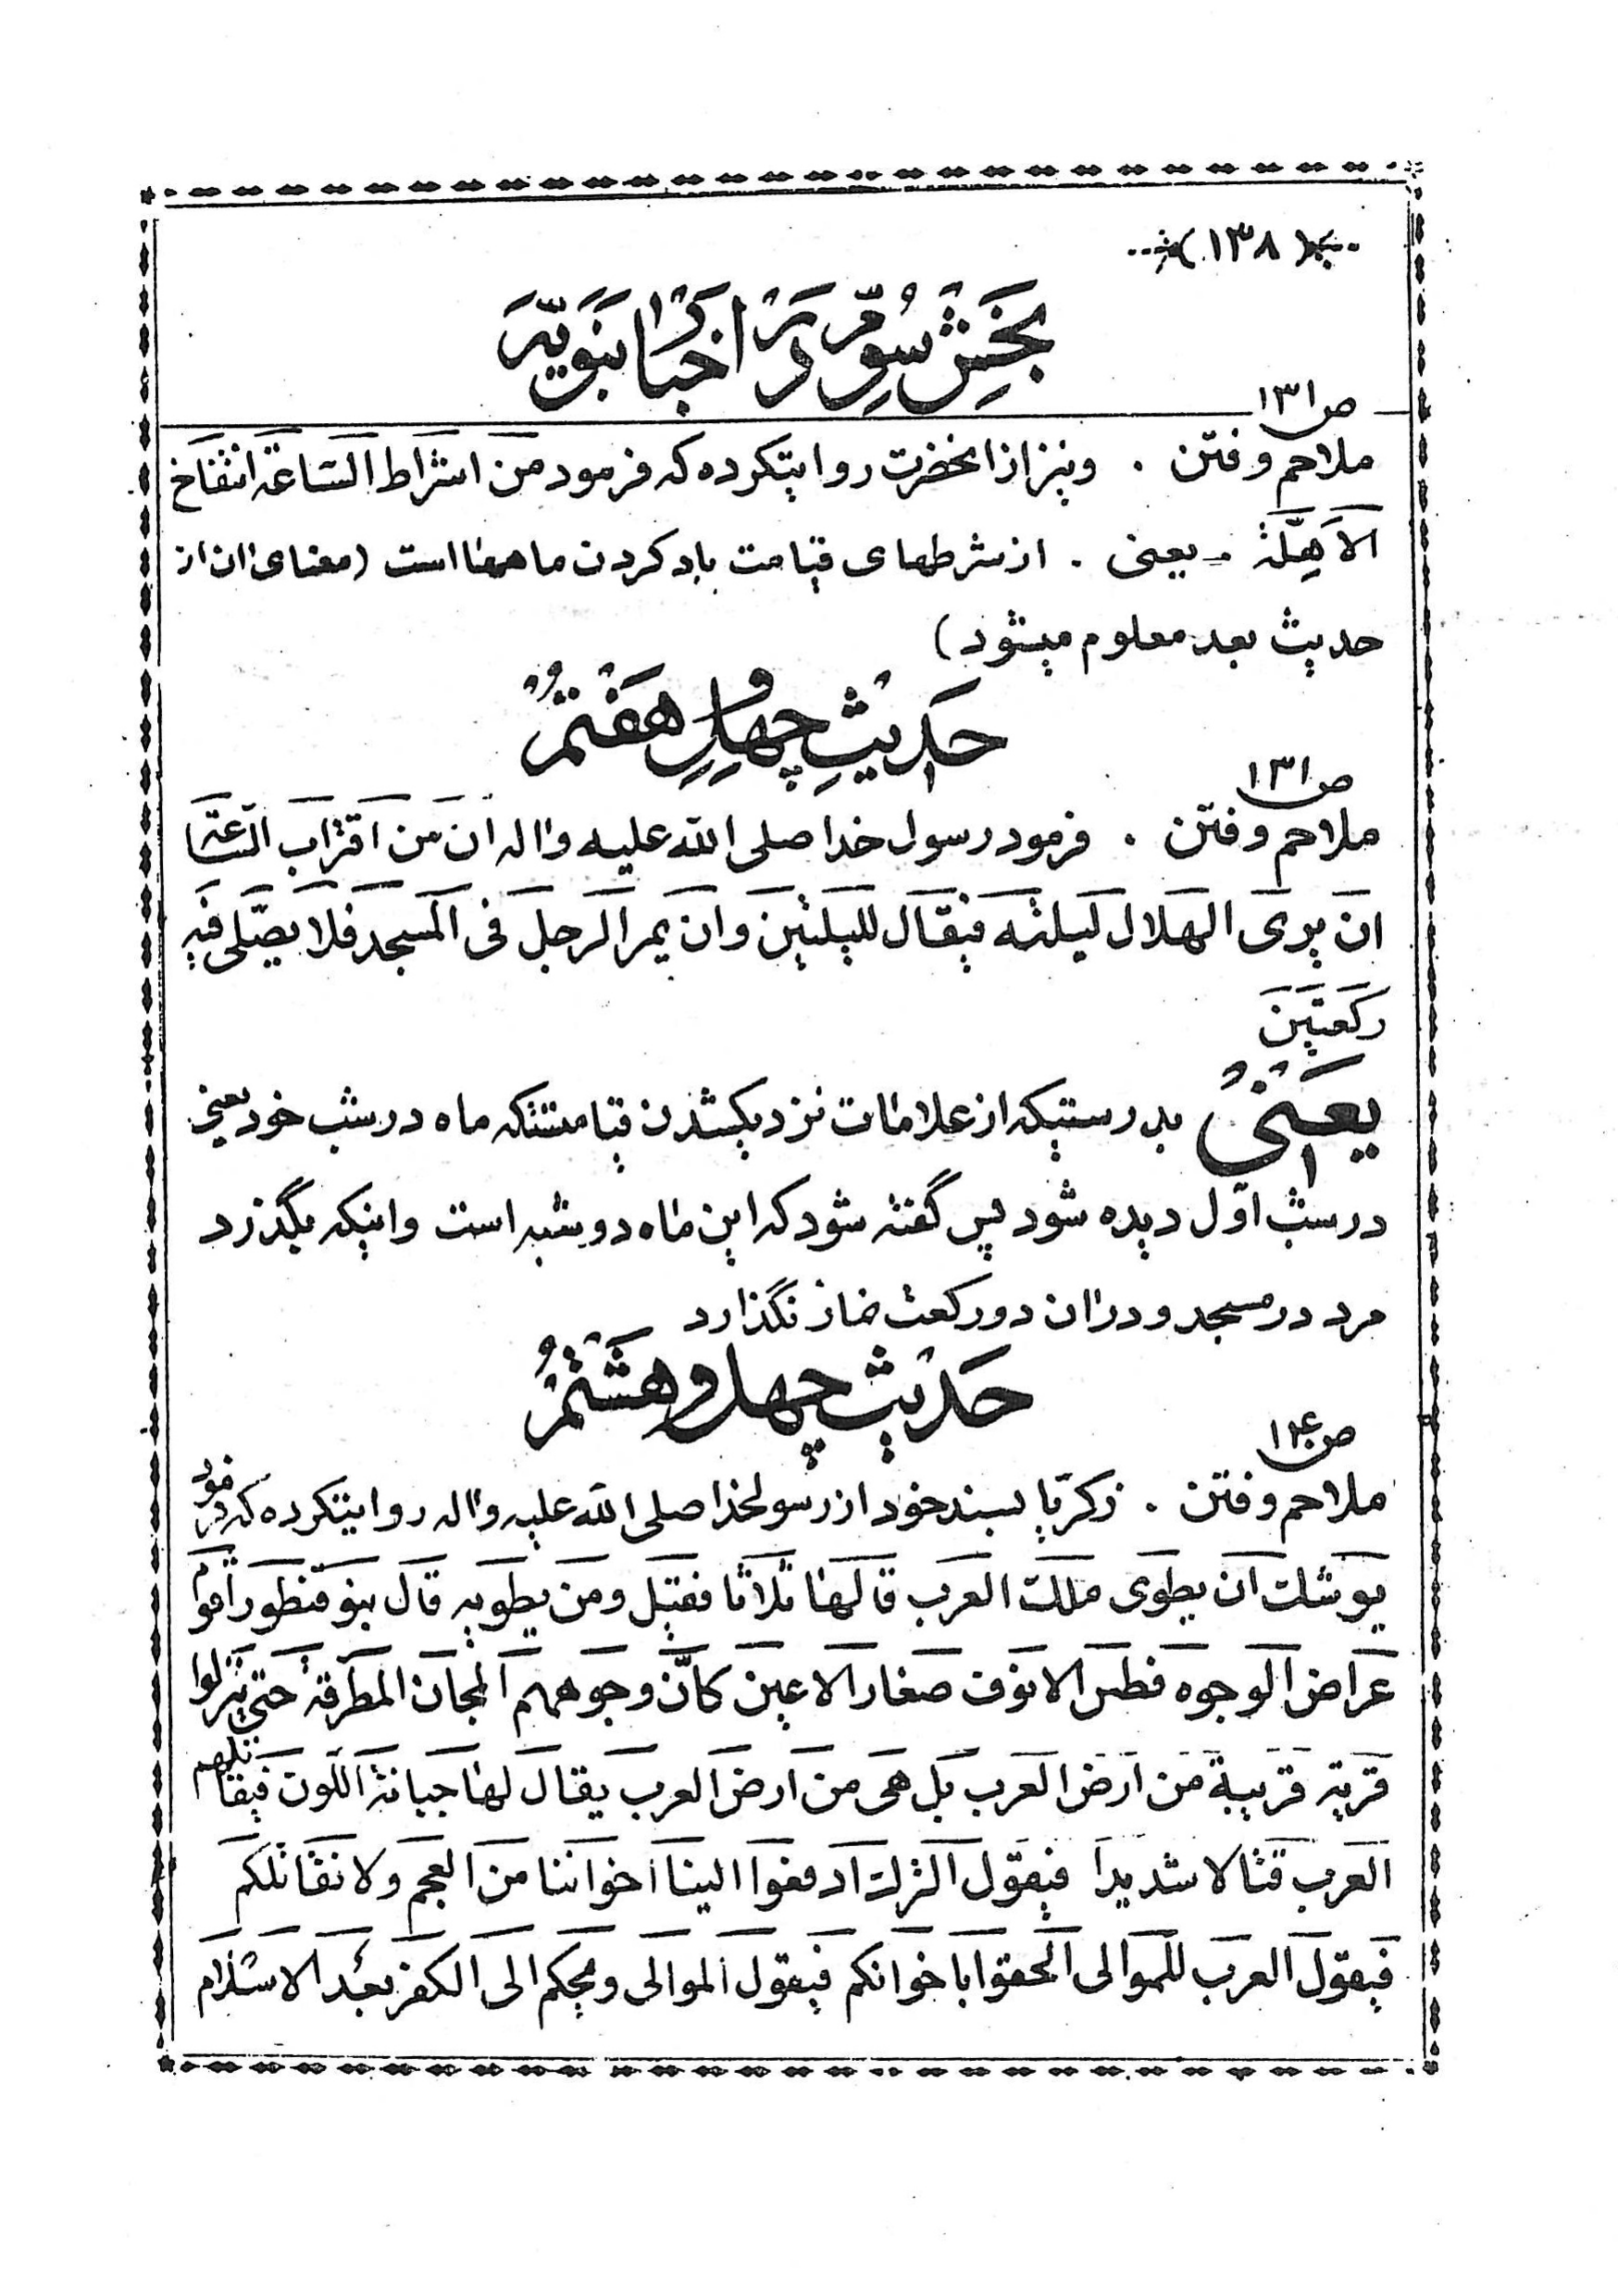 (۱۳۸)
بخش سوم در اخبار نبویه
ص۱۳۱
ملاحم و فتن . و نیز از انحضرت روایتکرده که فرمود من اشراط الساعة انتفاخ
الاهلّة - یعنی . از شرطهای قیامت باد کردن ماهها است (معنای ان از
حدیث بعد معلوم میشود)
حدیث چهل و هفتم
ص۱۳۱
ملاحم و فتن . فرمود رسول خدا صلی الله علیه و اله ان من اقتراب الساعة
ان یری الهلال لیلته فیقال للیلتین وان یمر الرجل فی المسجد فلا یصلی فیه
رکعتین
یعنی بدرستیکه از علامات نزدیکشدن قیامتستکه ماه در شب خود یعنی
در شب اوّل دیده شود پس گفته شود که این ماه دو شبه است و اینکه بگذرد
مرد در مسجد و در ان دو رکعت نماز نگذارد
حدیث چهل و هشتم
ملاحم و فتن . زکریّا بسند خود از رسولخدا صلی الله علیه و اله روایتکرده که فرمود
یوشک ان یطوی ملک العرب قالها ثلاثا فقیل ومن یطویه قال بنو قنطورا قوم
عراض الوجوه فطس الانوف صغار الاعین کانّ وجوههم المجان المطرقة حتی ینزلوا
قریة قریبة من ارض العرب بل هی من ارض العرب یقال لها جبانة اللون فیقاتلهم
العرب قتالا شدیدا فیقول الترک ادفعوا الینا اخواننا من العجم ولا نقاتلکم
فیقول العرب للموالی الحقوا باخوانکم فیقول الموالی ویحکم الی الکفر بعد الاسلام